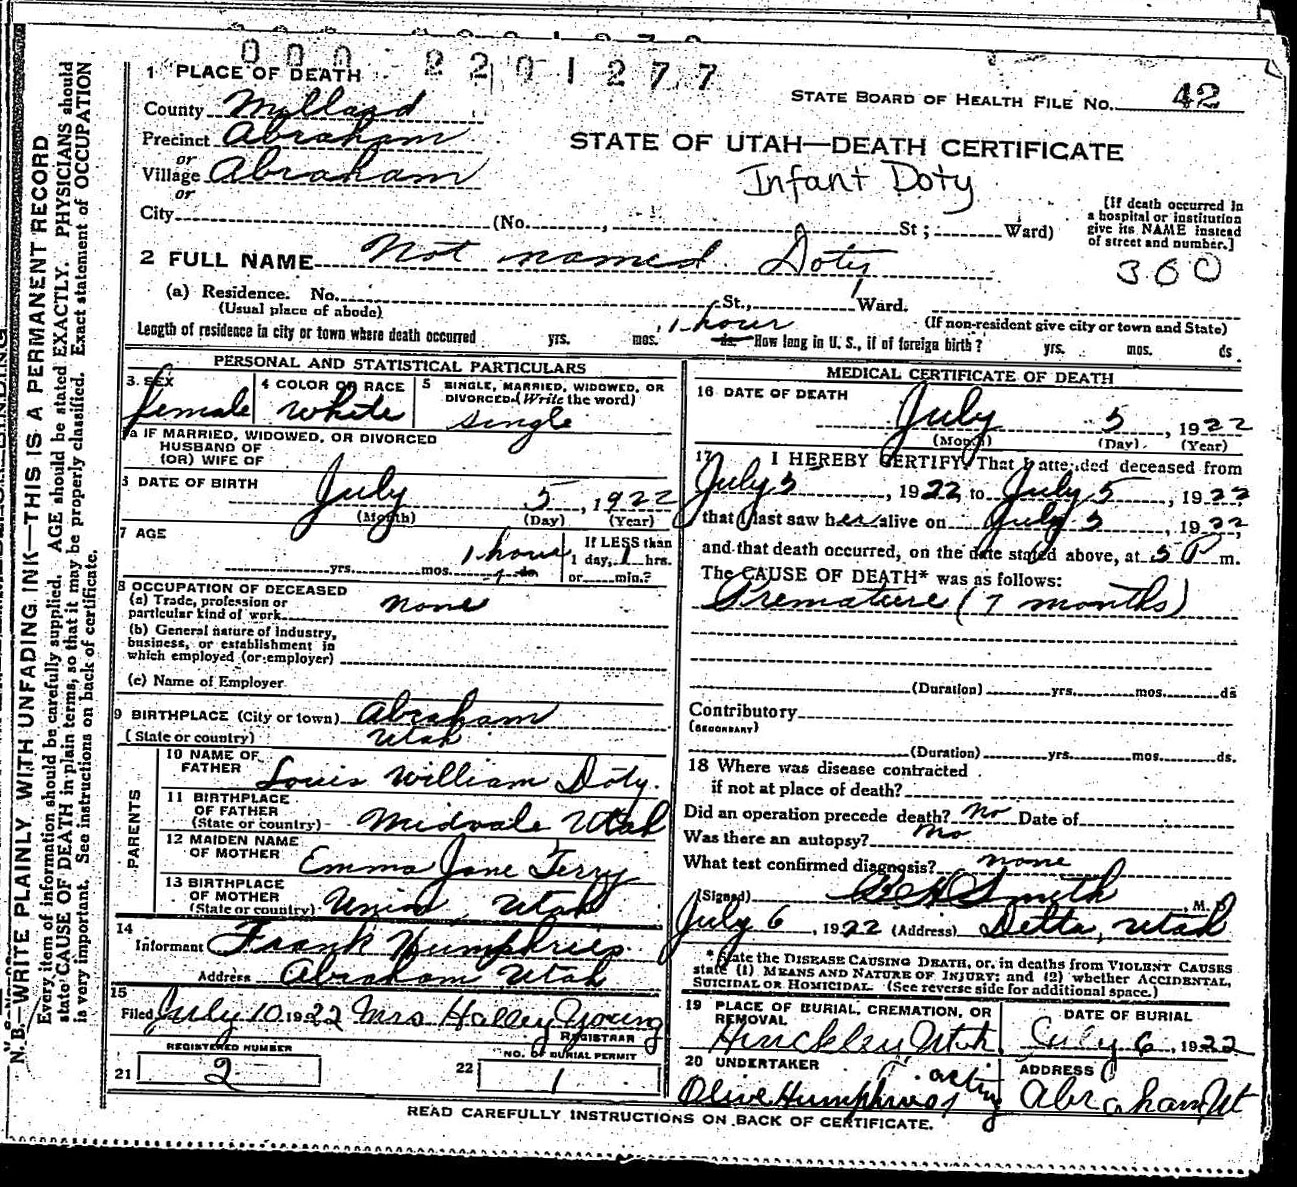 000 2201277
1 PLACE OF DEATH
STATE BOARD OF HEALTH FILE NO. 42
County Millard
Precinct Abraham
or
Village Abraham
or
STATE OF UTAH—DEATH CERTIFICATE
Infant Doty
City (No. , St ; Ward)
[If death occurred in
a hospital or institution
give its NAME instead
of street and number.]
2 FULL NAME Not named Doty
360
(a) Residence. No. St., Ward.
(Usual place of abode)
(If non-resident give city or town and State)
Length of residence in city or town where death occurred yrs. mos. 1 hour ds. How long in U. S., if of foreign birth? yrs. mos. ds.
PERSONAL AND STATISTICAL PARTICULARS
3. SEX
female
4 COLOR OR RACE
White
5 SINGLE, MARRIED, WIDOWED, OR
DIVORCED (Write the word)
single
5a IF MARRIED, WIDOWED, OR DIVORCED
HUSBAND OF
(OR) WIFE OF
6 DATE OF BIRTH
July 5, 1922
(Month) (Day) (Year)
7 AGE
yrs. mos. 1 hour
If LESS than
1 day, 1 hrs.
or min.?
8 OCCUPATION OF DECEASED
(a) Trade, profession or
particular kind of work none
(b) General nature of industry,
business, or establishment in
which employed (or employer)
(c) Name of Employer
9 BIRTHPLACE (City or town) Abraham
(State or country) Utah
PARENTS
10 NAME OF
FATHER Louis William Doty.
11 BIRTHPLACE
OF FATHER
(State or country) Midvale Utah
12 MAIDEN NAME
OF MOTHER Emma Jane Terry
13 BIRTHPLACE
OF MOTHER
(State or country) Union, Utah
14
Informant Frank Humphries
Address Abraham Utah
15
Filed July 10 1922 Mrs Halley Young
REGISTRAR
REGISTERED NUMBER
21 2
NO. OF BURIAL PERMIT
22 1
MEDICAL CERTIFICATE OF DEATH
16 DATE OF DEATH
July 5, 1922
(Month) (Day) (Year)
17 I HEREBY CERTIFY, That I attended deceased from
July 5, 1922 to July 5, 1922
that I last saw her alive on July 5, 1922,
and that death occurred, on the date stated above, at 5 P m.
The CAUSE OF DEATH* was as follows:
Premature (7 months)
(Duration) yrs. mos. ds
Contributory
(SECONDARY)
(Duration) yrs. mos. ds.
18 Where was disease contracted
if not at place of death?
Did an operation precede death? No Date of
Was there an autopsy? No
What test confirmed diagnosis? none
(Signed) Smith, M. D
July 6, 1922 (Address) Delta, Utah
*State the DISEASE CAUSING DEATH, or, in deaths from VIOLENT CAUSES
state (1) MEANS AND NATURE OF INJURY; and (2) whether ACCIDENTAL,
SUICIDAL OR HOMICIDAL. (See reverse side for additional space.)
19 PLACE OF BURIAL, CREMATION, OR
REMOVAL
Hinckley, Utah.
DATE OF BURIAL
July 6, 1922
20 UNDERTAKER
Olive Humphries acting
ADDRESS
Abraham, Ut
READ CAREFULLY INSTRUCTIONS ON BACK OF CERTIFICATE.
N. B.—WRITE PLAINLY, WITH UNFADING INK—THIS IS A PERMANENT RECORD
Every item of information should be carefully supplied. AGE should be stated EXACTLY. PHYSICIANS should
state CAUSE OF DEATH in plain terms, so that it may be properly classified. Exact statement of OCCUPATION
is very important. See instructions on back of certificate.